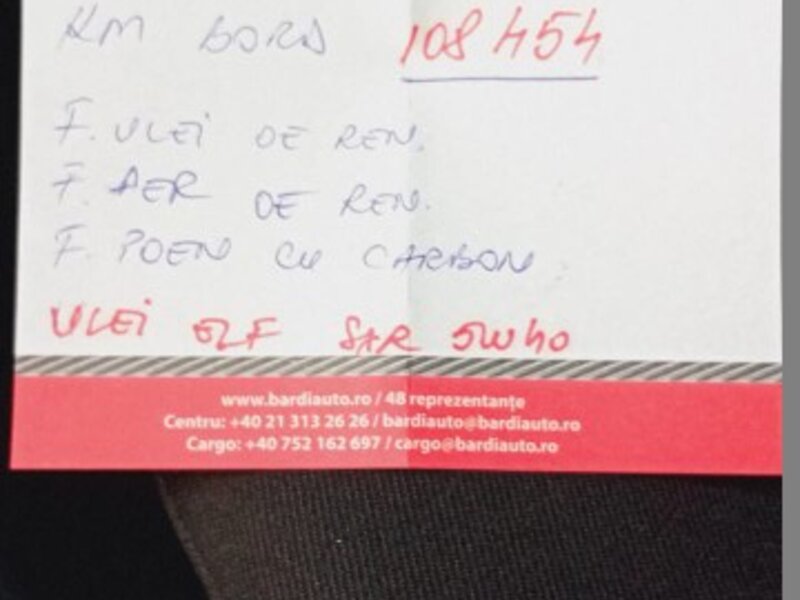 KM BORD 108 454
F. ULEI DE REN.
F. AER DE REN.
F. POEN CU CARBON
ULEI ELF SXR 5W40
www.bardiauto.ro / 48 reprezentanțe
Centru: +40 21 313 26 26 / bardiauto@bardiauto.ro
Cargo: +40 752 162 697 / cargo@bardiauto.ro